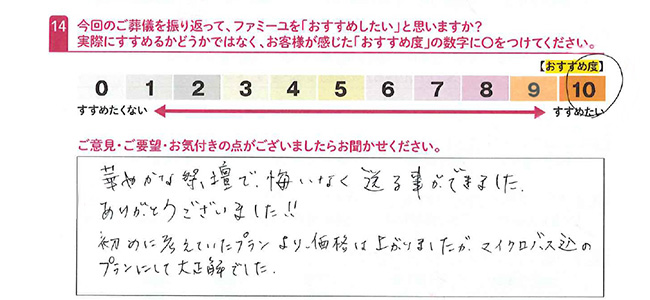 14 今回のご葬儀を振り返って、ファミーユを「おすすめしたい」と思いますか?
実際にすすめるかどうかではなく、お客様が感じた「おすすめ度」の数字に○をつけてください。
【おすすめ度】
0 1 2 3 4 5 6 7 8 9 10
すすめたくない すすめたい
ご意見・ご要望・お気付きの点がございましたらお聞かせください。
華やかな祭壇で、悔いなく送る事ができました。
ありがとうございました!!
初めに考えていたプランより、価格は上がりましたが、マイクロバス込の
プランにして大正解でした。